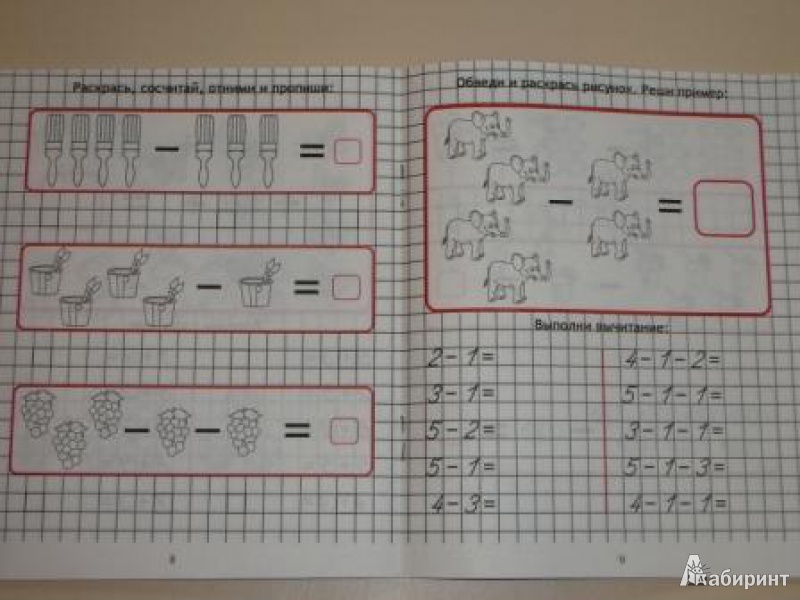 Раскрась, сосчитай, отними и пропиши:
- =
- =
- - =
8
Обведи и раскрась рисунок. Реши пример:
- =
Выполни вычитание:
2-1=
3-1=
5-2=
5-1=
4-3=
4-1-2=
5-1-1=
3-1-1=
5-1-3=
4-1-1=
9
Лабиринт